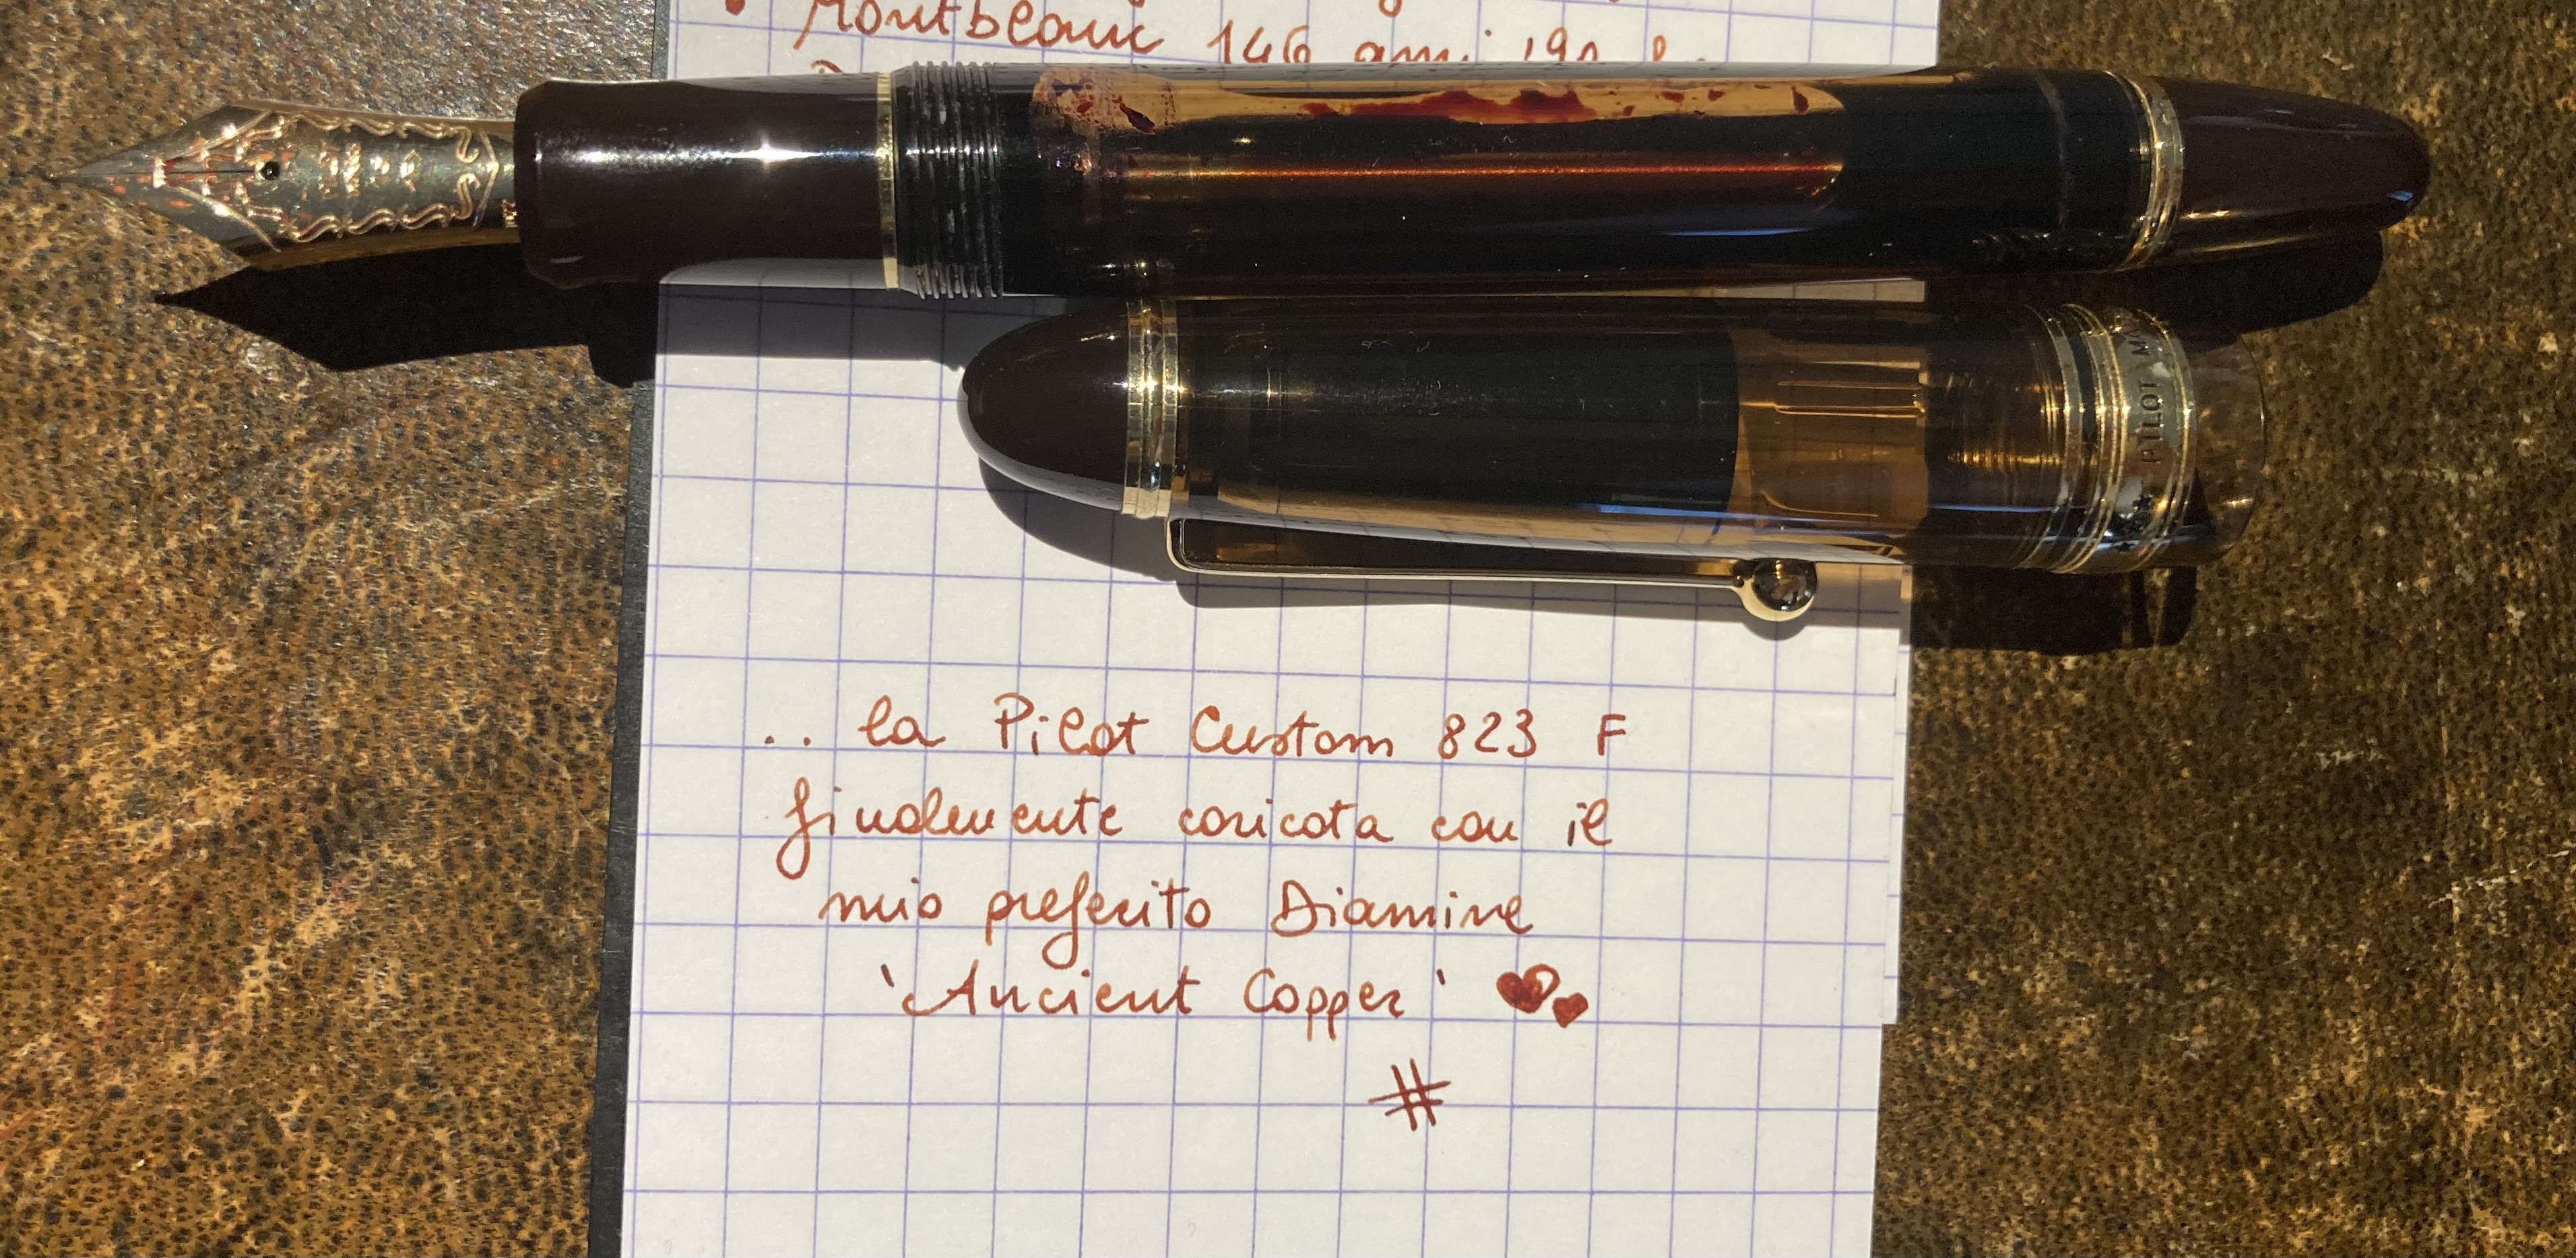 Montblanc 146 anni
PILOT
.. la Pilot Custom 823 F
finalmente caricata con il
mio preferito Diamine
'Ancient Copper'
#